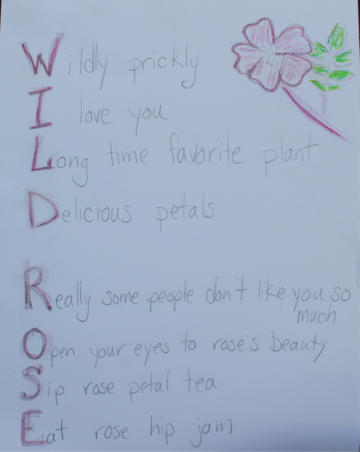 Wildly prickly
I love you
Long time favorite plant
Delicious petals
Really some people don't like you so
much
Open your eyes to rose's beauty
Sip rose petal tea
Eat rose hip jam